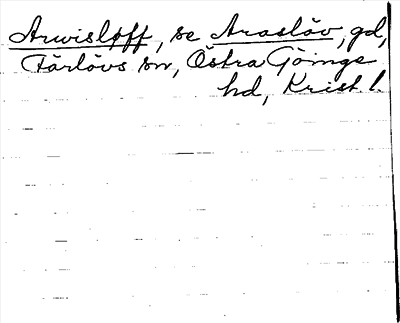 Arwisløff, se Araslöv, gd,
Färlövs sn, Östra Göinge
hd, Krist. l.